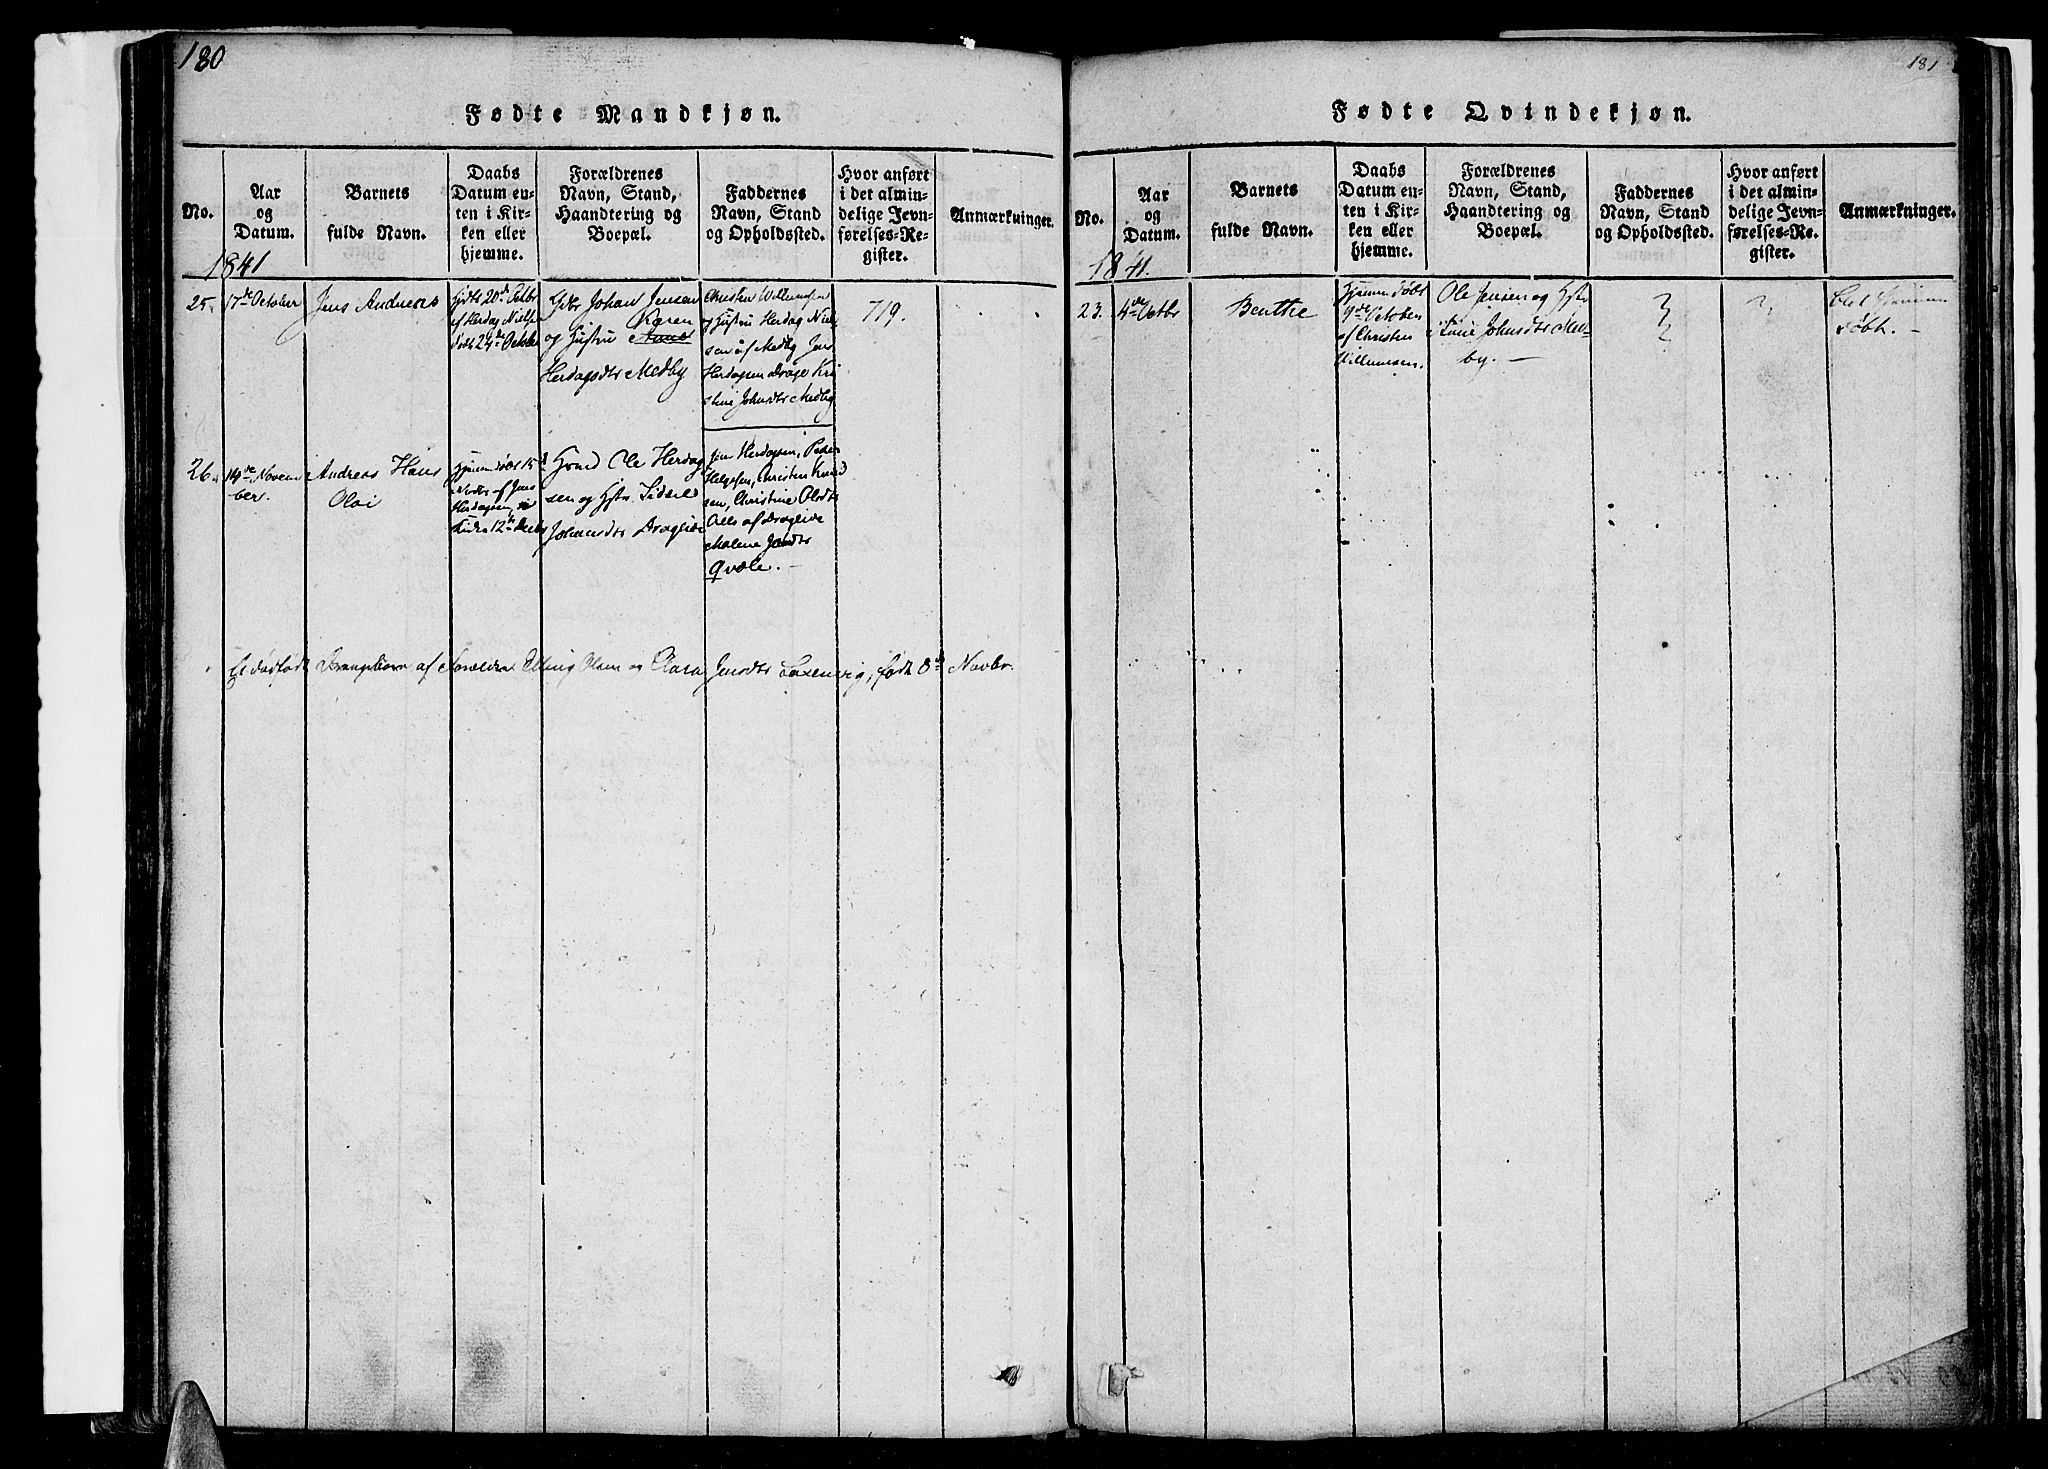 180
Fødte Mandkjøn.
No.
Aar
og
Datum.
Barnets
fulde Navn.
Daabs
Datum en-
ten i Kir-
ken eller
hjemme.
Forældrenes
Navn, Stand,
Haandtering og
Boepæl.
Faddernes
Navn, Stand
og Opholdssted.
Hvor anført
i det almin-
delige Jevn-
førelses-Re-
gister.
Anmærkninger.
1841
25.
17de October
Jens Andreas
20de Octbr
af Herdag Niels
24de October
Johan Jensen
Karen
og Hustru Anne
Herdagsdtr Medby
Christen Willumsen
og Hustru Herdag Niel
sen af Medby Jens
Herdagsen Drage Kri
stine Johnsdtr Medby
719.
26.
14de Novem
ber.
Andreas Hans
Oloi
Hjemmedøbt 15
af Jens
Herdagsen, i
Kirken 12te Decbr
Ole Herdag
sen og Hstr. Sidsel
Johansdtr Draglide
Jens Herdagsen, Peder
Helgesen, Christen Knud
sen, Christine Olsdtr
Alle af Draglide
Malene Jensdtr
Qvæle.
Et dødfødt Drengebarn af Forældre Elling Olsen og Clara Jensdtr Laxenvig, født 8de Novbr.
181
Fødte Qvindekjøn.
No.
Aar
og
Datum.
Barnets
fulde Navn.
Daabs
Datum en-
ten i Kir-
ken eller
hjemme.
Forældrenes
Navn, Stand,
Haandtering og
Boepæl.
Faddernes
Navn, Stand
og Opholdssted.
Hvor anført
i det almin-
delige Jevn-
førelses-Re-
gister.
Anmærkninger.
1841.
23.
4de Octbr
Benthe
Hjemmedøbt
9de October
af Christen
Willumsen.
Ole Jensen og Hstr
Johnsdtr Med-
by.
?
?
Blot hjemme
døbt.